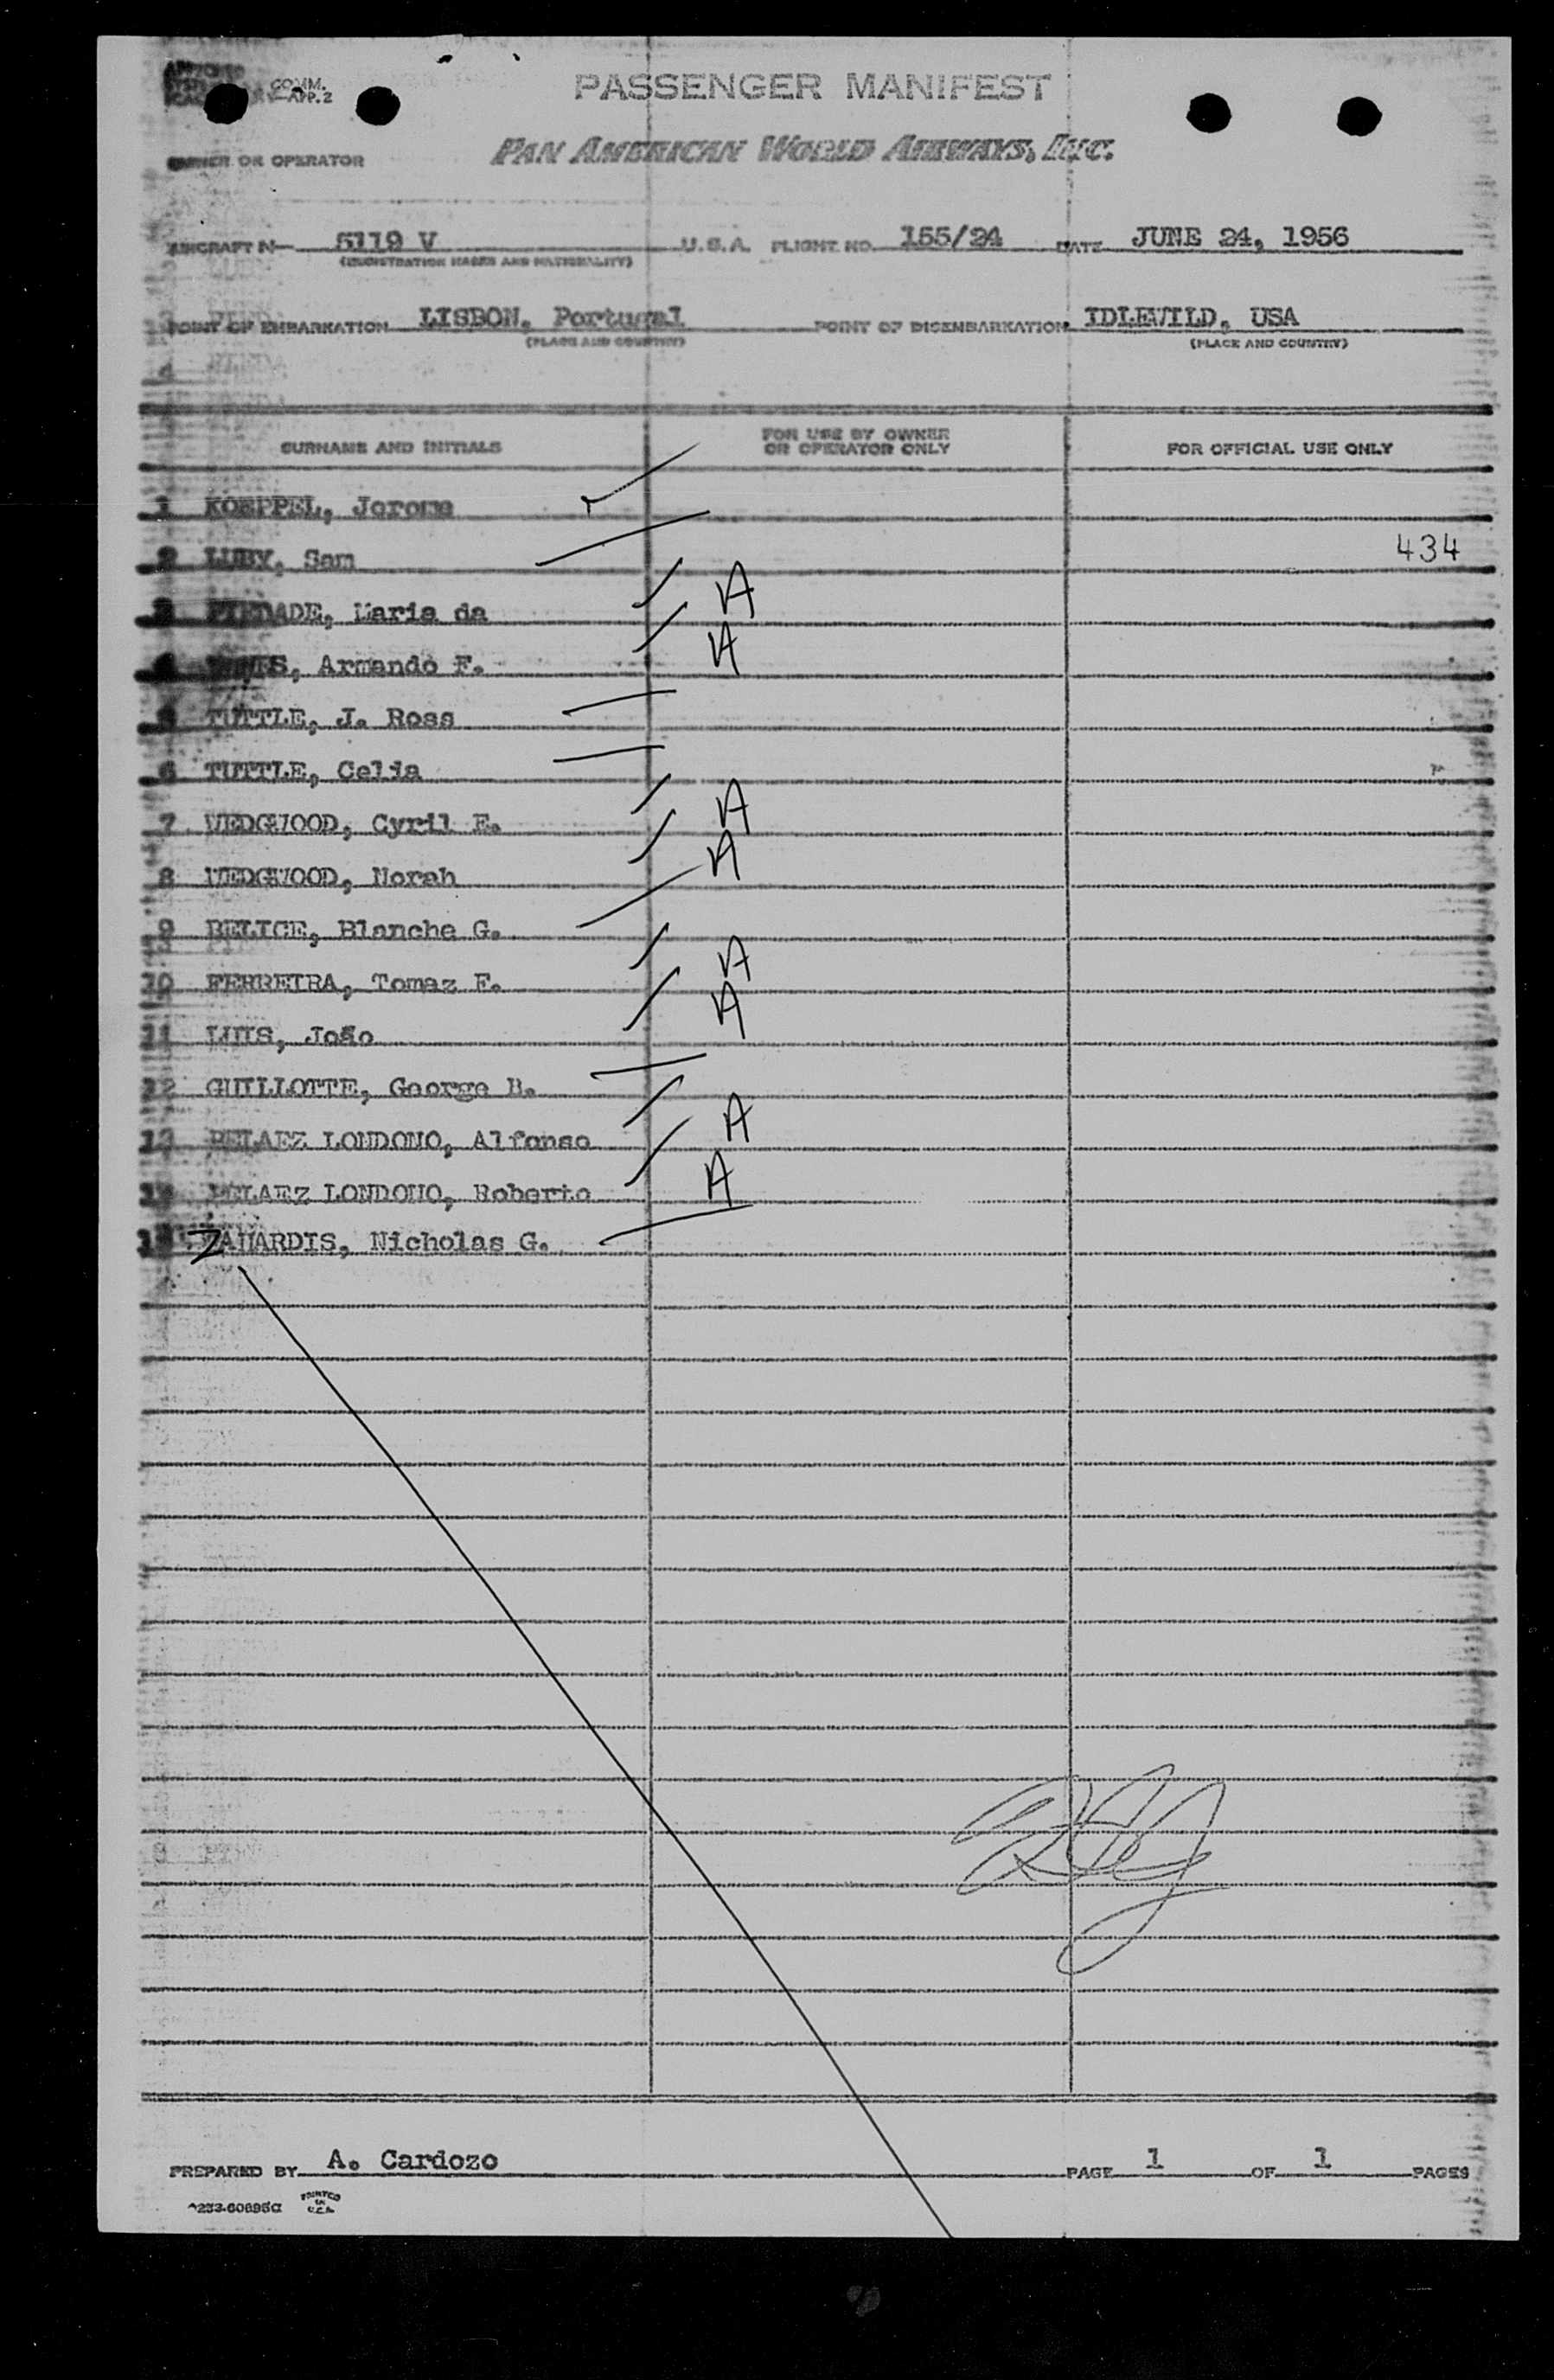 COMM.
APP.2
PASSENGER MANIFEST
OWNER OR OPERATOR PAN AMERICAN WORLD AIRWAYS, INC.
AIRCRAFT N— 5119 V U.S.A. FLIGHT NO. 155/24 DATE JUNE 24, 1956
(REGISTRATION MARKS AND NATIONALITY)
POINT OF EMBARKATION LISBON, Portugal POINT OF DISEMBARKATION IDLEWILD, USA
(PLACE AND COUNTRY) (PLACE AND COUNTRY)
SURNAME AND INITIALS FOR USE BY OWNER OR OPERATOR ONLY FOR OFFICIAL USE ONLY
1 KOEPPEL, Jerome
2 LUBY, Sam 434
3 PIEDADE, Maria da A
4 Armando F. A
5 TUTTLE, J. Ross
6 TUTTLE, Celia
7 WEDGWOOD, Cyril E. A
8 WEDGWOOD, Norah A
9 BELICE, Blanche G.
10 FERREIRA, Tomaz F. A
11 LUIS, João A
12 GUILLOTTE, George B.
13 PELAEZ LONDONO, Alfonso A
14 PELAEZ LONDONO, Roberto A
15 ZAHARDIS, Nicholas G.
PREPARED BY A. Cardozo PAGE 1 OF 1 PAGES
PRINTED IN U.S.A.